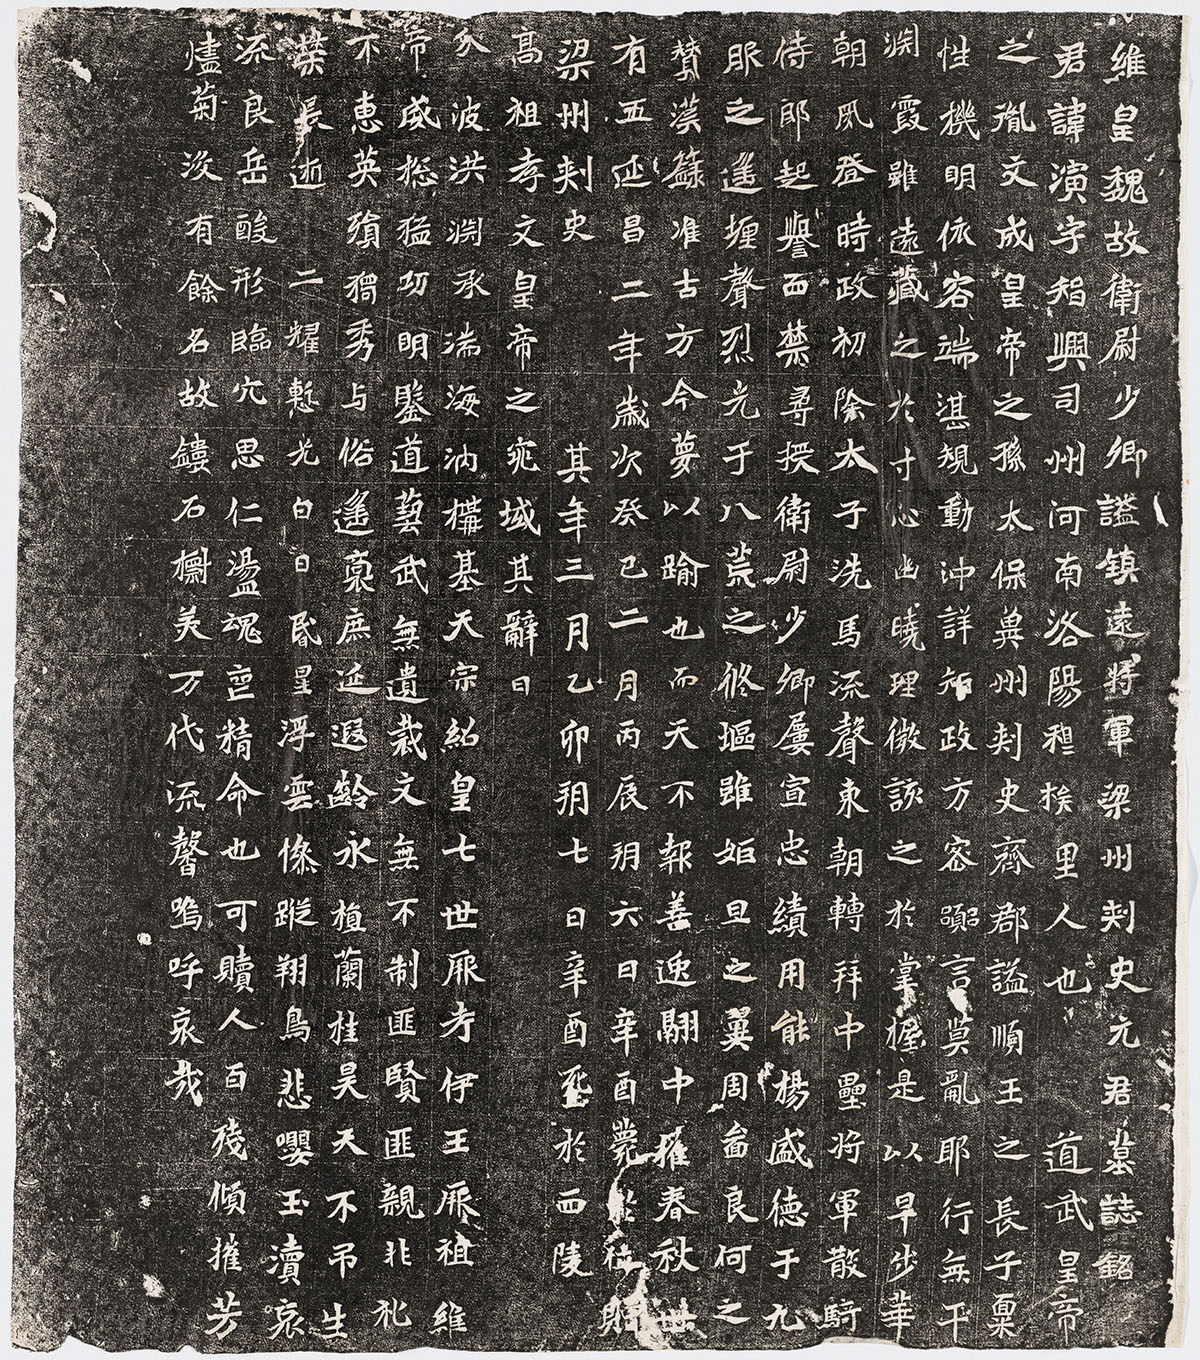 維皇魏故衛尉少卿謚鎮遠將軍梁州刾史元君墓誌銘
君諱演字智興司州河南洛陽穆族里人也 道武皇帝
之胤文成皇帝之孫太保兾州刾史齊郡謚順王之長子稟
性機明依容端湛規動沖詳知政方密號言莫亂耶行無干
渕霞雖遠藏之於寸心幽曉理微該之於掌握是以早步華
朝夙登時政初除太子洗馬流聲東朝轉拜中壘將軍散騎
侍郎起譽西禁尋授衛尉少卿屢宣忠績用能楊威德于九
服之遥堙聲烈光于八荒之修塸雖姬旦之翼周畣良何之
贊漢籙准古方今夢以踰也而天不報善逸翮中摧春秋卅
有五延昌二年歲次癸巳二月丙辰朔六日辛酉薨於徒賜
梁州刾史 其年三月乙卯朔七日辛酉窆於西陵
高祖孝文皇帝之兆域其辭曰
分波洪渕承湍海汭構基天宗紹皇七世厥考伊王厥祖維
帝威惣猛叨明鑒道藝武無遺裁文無不制匪賢匪親非礼
不惠英殞獨秀与俗遥裒庶延遐齡永植蘭桂昊天不吊生
榮長逝 二耀慙光白日日昬星浮雲惨蹤翔鳥悲嚶玉瀆哀
流良岳酸形臨穴思仁盪魂啻精命也可贖人百殘傾摧芳
燼菊沒有餘名故鏤石櫥美万代流馨嗚呼哀㦲